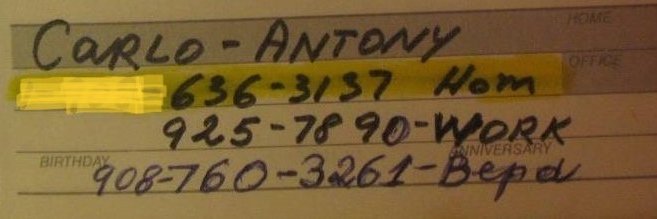 HOME
CARLO-ANTONY
OFFICE
636-3137 Hom
925-7890-WORK
ANNIVERSARY
BIRTHDAY
908-760-3261-Вера